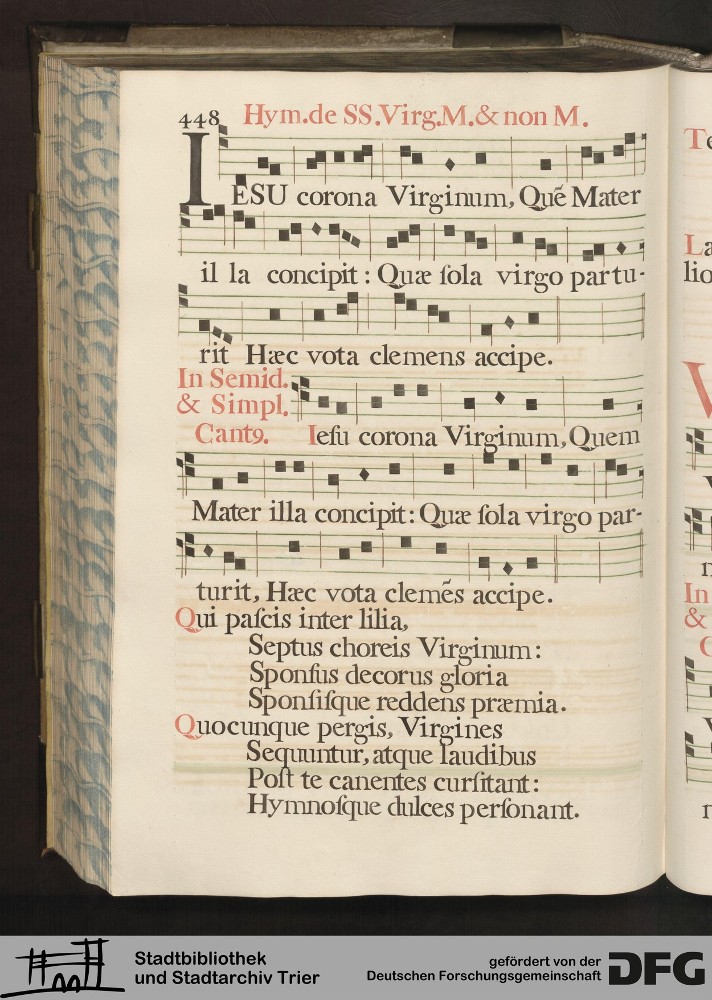 448 Hym.de SS.Virg.M.& non M.
IESU corona Virginum, Quẽ Mater
il la concipit: Quæ ſola virgo partu-
rit Hæc vota clemens accipe.
In Semid.
& Simpl.
Cantꝰ. Ieſu corona Virginum, Quem
Mater illa concipit: Quæ ſola virgo par-
turit, Hæc vota clemẽs accipe.
Qui paſcis inter lilia,
Septus choreis Virginum:
Sponſus decorus gloria
Sponſiſque reddens præmia.
Quocunque pergis, Virgines
Sequuntur, atque laudibus
Poſt te canentes curſitant:
Hymnoſque dulces perſonant.
Te
La
lio
In
&
Stadtbibliothek
und Stadtarchiv Trier
gefördert von der
Deutschen Forschungsgemeinschaft
DFG